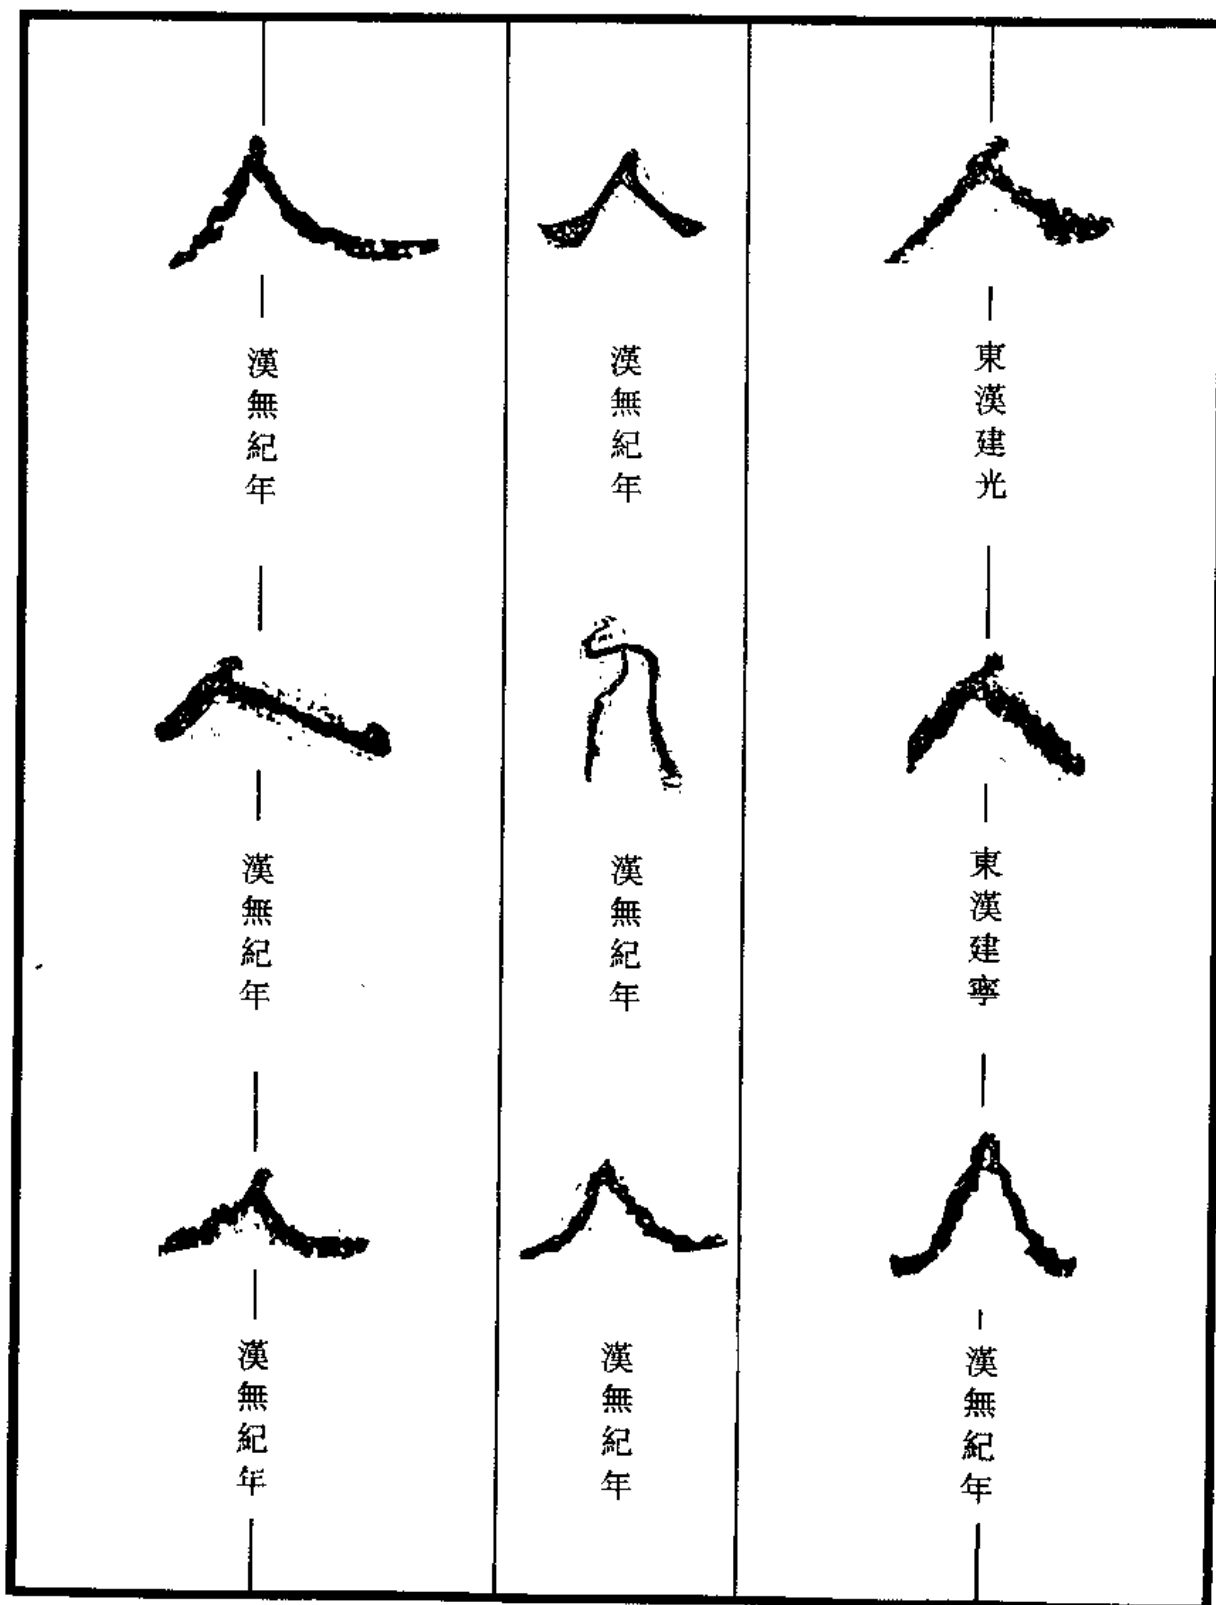 人
東漢建光
人
東漢建寧
人
漢無紀年
人
漢無紀年
人
漢無紀年
人
漢無紀年
人
漢無紀年
人
漢無紀年
人
漢無紀年